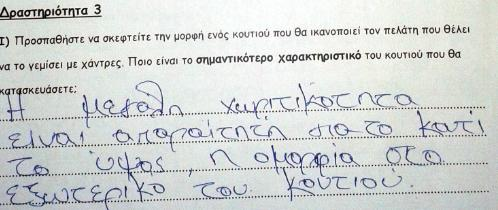 Δραστηριότητα 3
Ι) Προσπαθήστε να σκεφτείτε την μορφή ενός κουτιού που θα ικανοποιεί τον πελάτη που θέλει
να το γεμίσει με χάντρες. Ποιο είναι το σημαντικότερο χαρακτηριστικό του κουτιού που θα
κατασκευάσετε;
Η μεγαλη χωριτικότητα
είναι απαραίτητη για το κατί
το ύψος, η ομορφία στο
εξωτερικό του κουτιού.